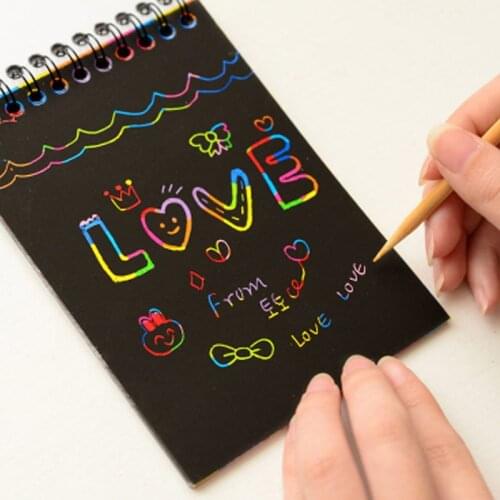 LOVE
From
토토ce
LOVE
LOVE